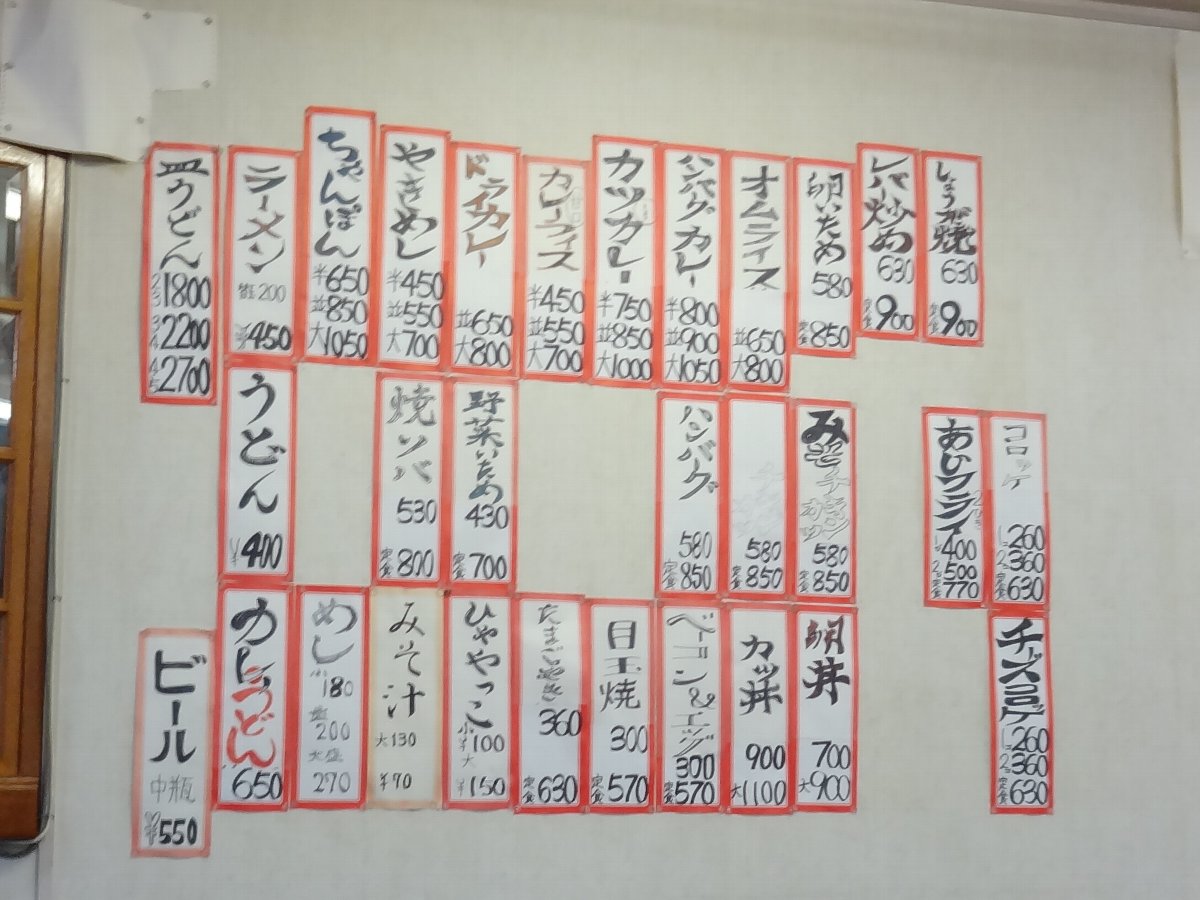 しょうが焼 630 定食 900
レバー炒め 630 定食 900
卵いため 580 定食 850
オムライス 並 650 大 800
ハンバーグカレー 半 800 並 900 大 1050
カツカレー 半 750 並 850 大 1000
カレーライス 半 450 並 550 大 700
ドライカレー 並 650 大 800
やきめし 半 450 並 550 大 700
ちゃんぽん 半 650 並 850 大 1050
ラーメン 替玉 200 ¥450
皿うどん 2/3 1800 3/4 2200 4/5 2700
コロッケ 1コ 260 2コ 360 定食 630
あじフライ 1コ 400 2コ 500 定食 770
みそチキンカツ 580 定食 850
580 定食 850
ハンバーグ 580 定食 850
野菜いため 430 定食 700
焼ソバ 530 定食 800
うどん ¥400
チーズコロッケ 1コ 260 2コ 360 定食 630
丼 700 大 900
カツ丼 900 大 1100
ベーコン&エッグ 300 定食 570
目玉焼 300 定食 570
たまごやき 360 定食 630
ひややっこ 小 ¥100 大 ¥150
みそ汁 大 130 ¥70
めし 小 180 200 大盛 270
カレーうどん 650
ビール 中瓶 ¥550